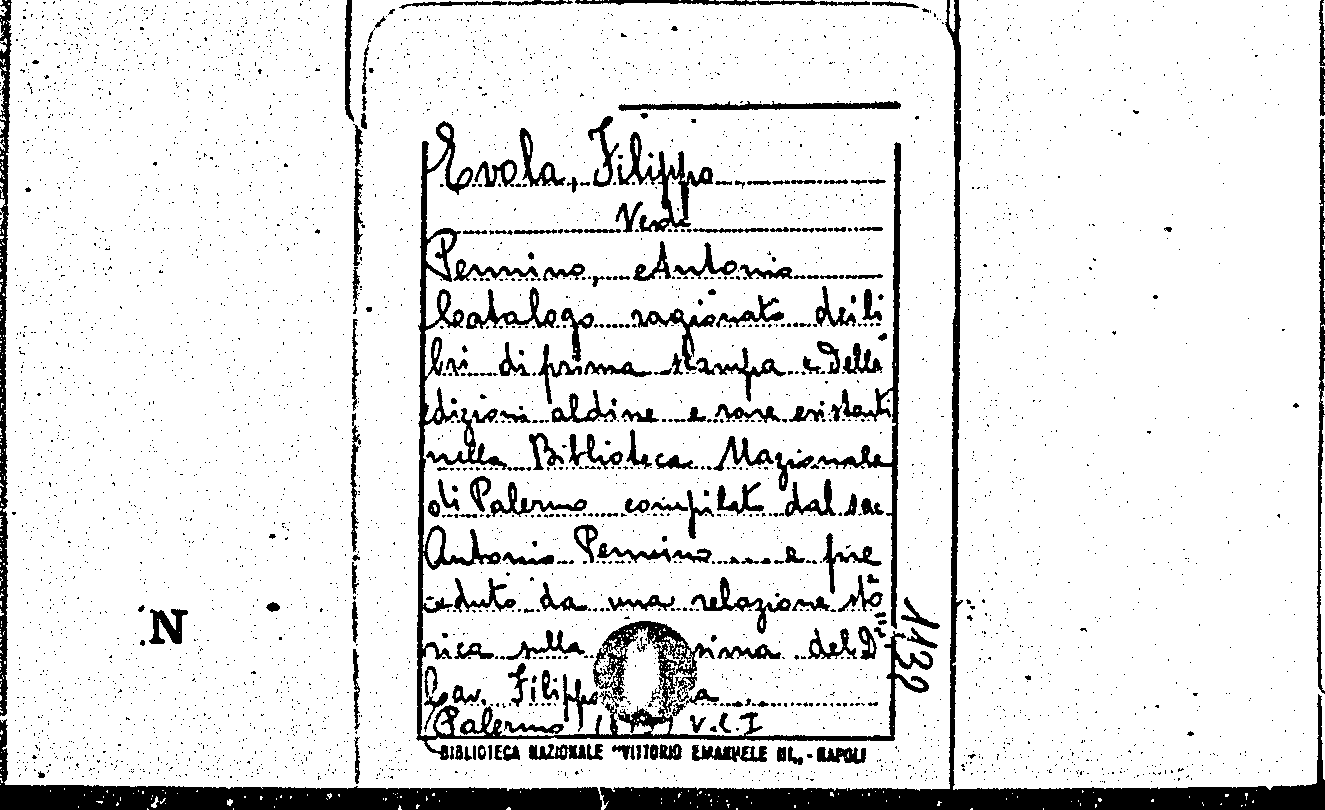 Evola, Filippo
Vedi
Pennino, Antonio
Catalogo ragionato dei li
bri di prima stampa e delle
edizioni aldine e rare esistenti
nella Biblioteca Nazionale
di Palermo compilato dal sac.
Antonio Pennino .... e pre
ceduto da una relazione sto
rica sulla sima del Dr
Cav. Filippo a ...
Palermo V. C. I
BIBLIOTECA NAZIONALE "VITTORIO EMANUELE III„ - NAPOLI
N
1132